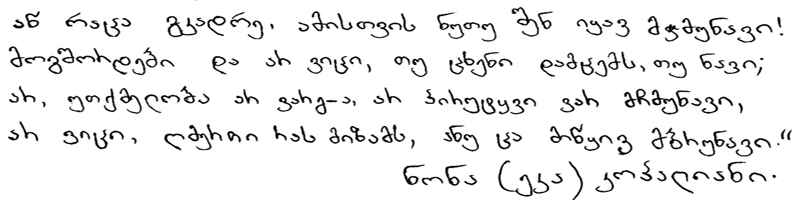 ან რაცა გკადრე, ამისთვის ნუთუ შენ იყავ მჯმუნავი!
მოგშორდები და არ ვიცი, თუ ცხენი დამცემს, თუ ნავი;
არ, უთქმელობა არ ვარგ-ა, არ პირუტყვი ვარ მჩმუნავი,
არ ვიცი, ღმერთი რას მიზამს, ანუ ცა მიწყივ მბრუნავი.“
ნონა (ეკა) კოპალიანი.